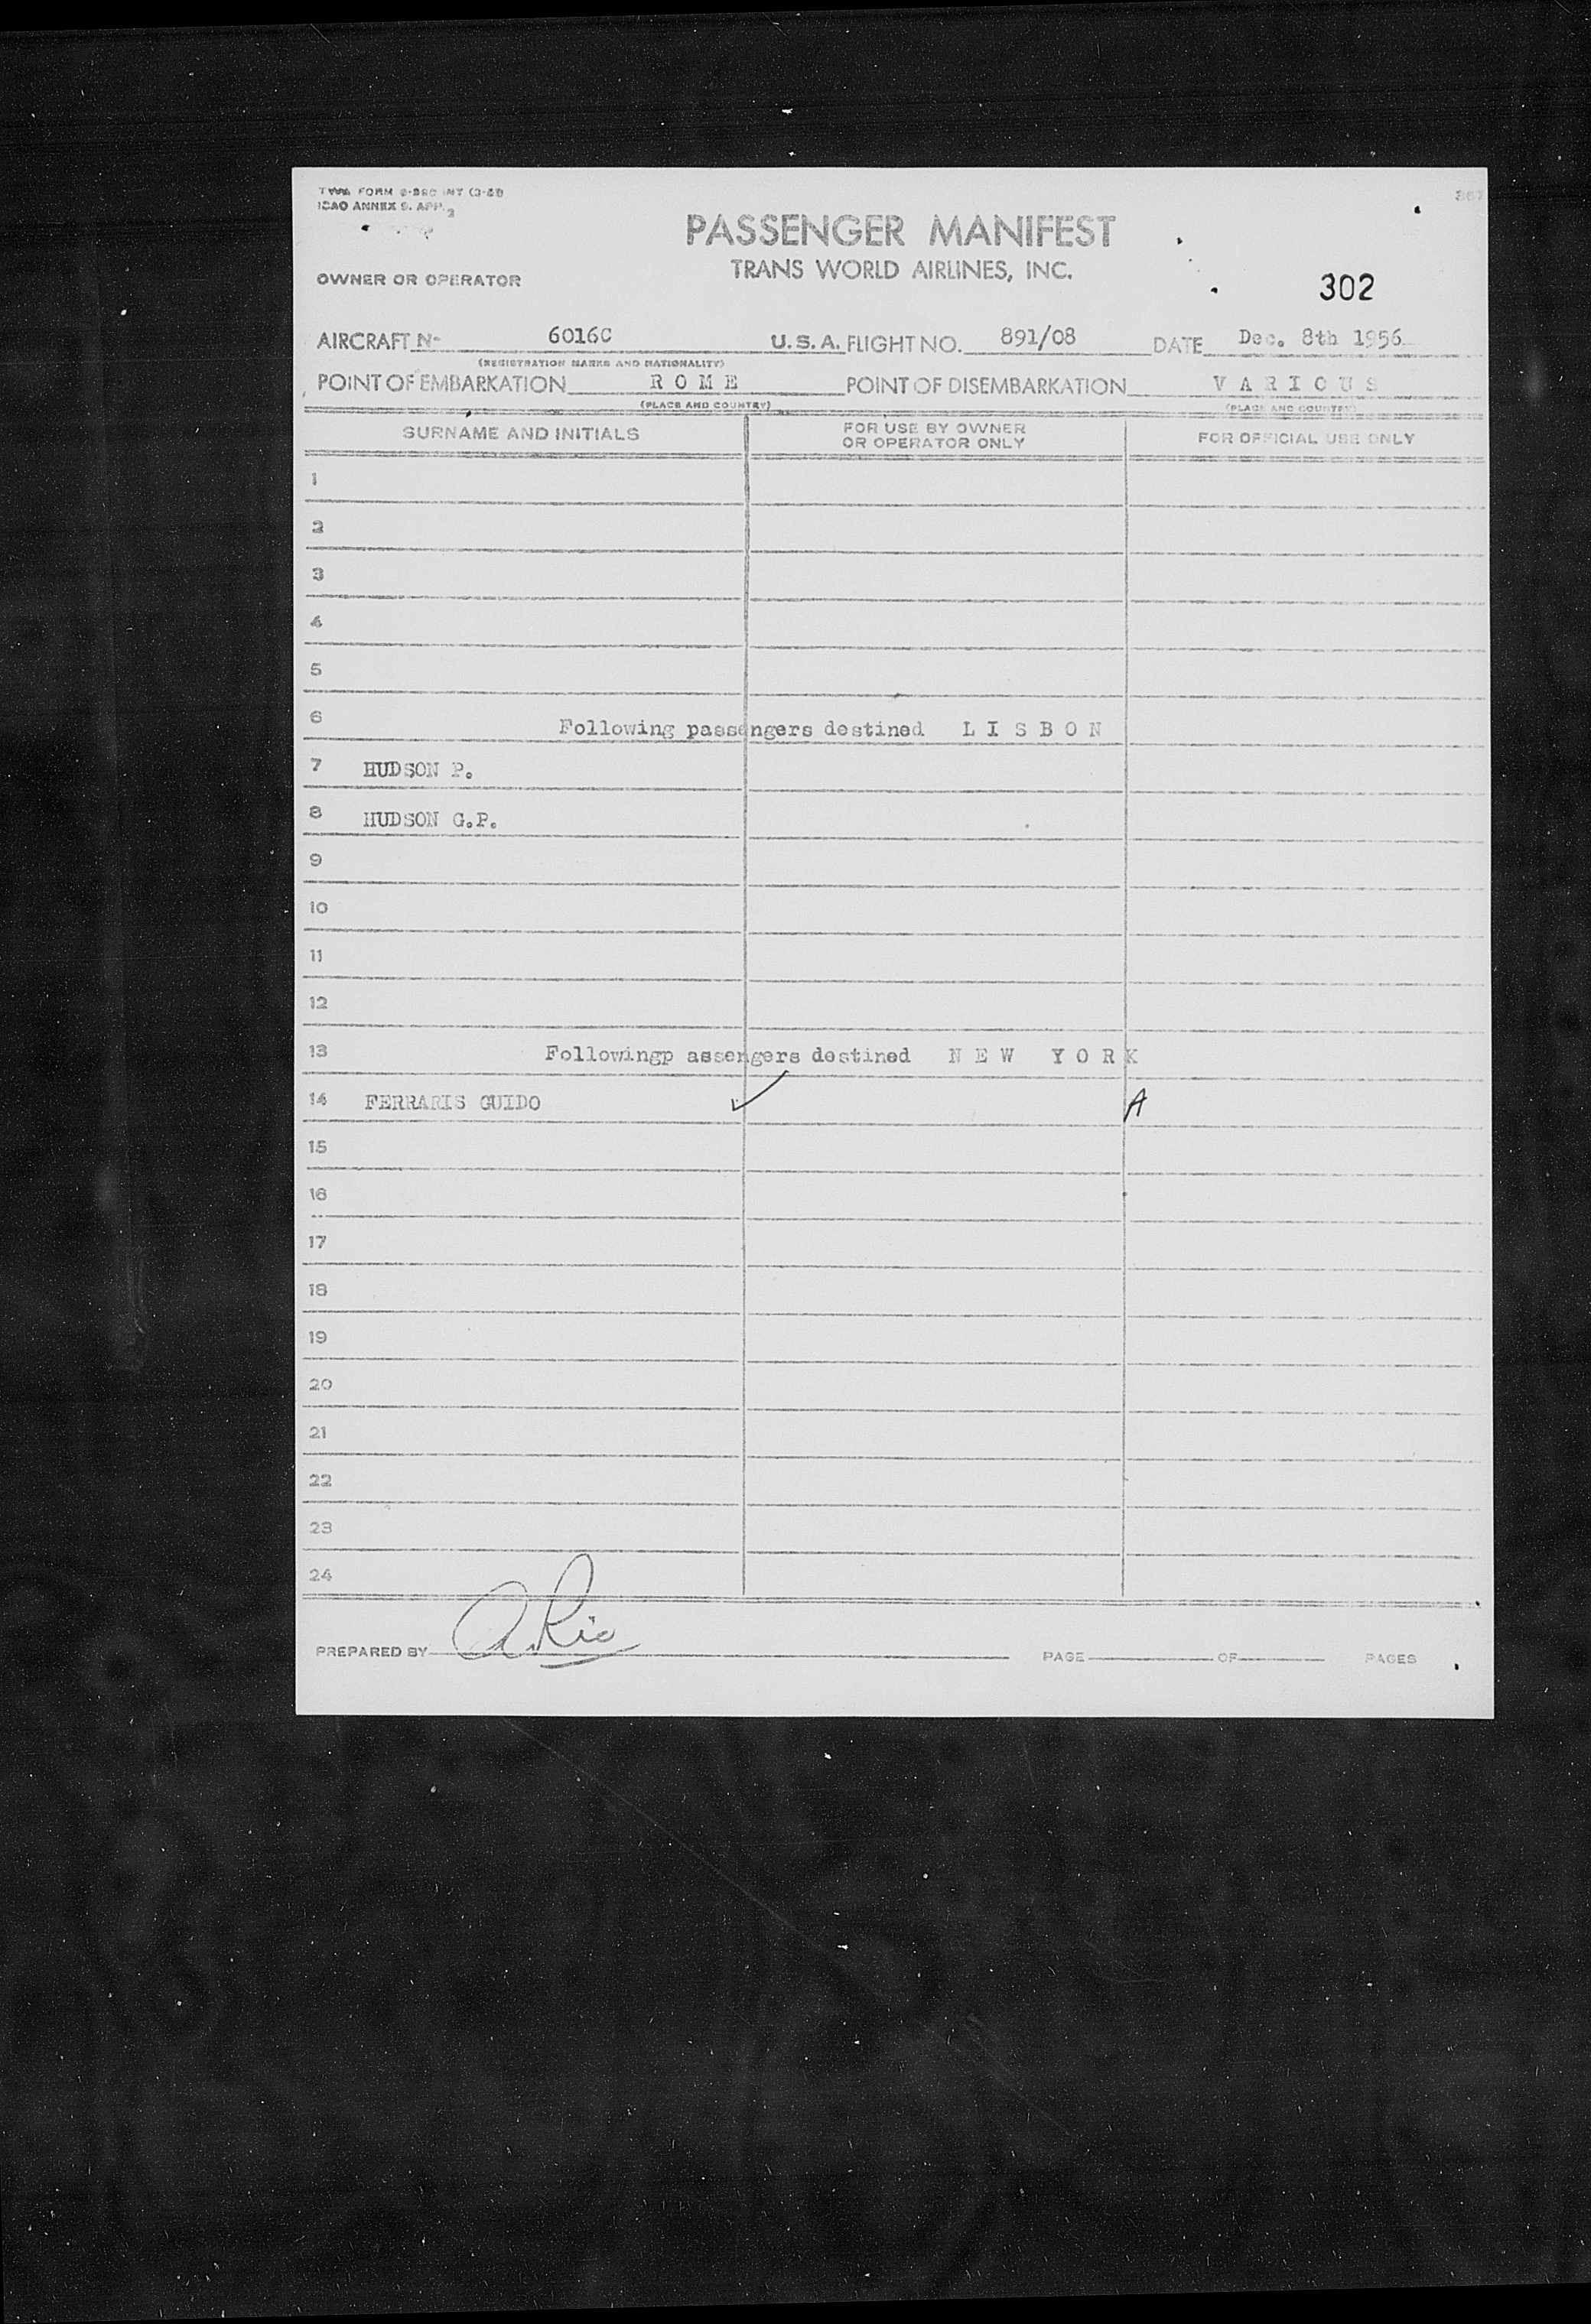 ICAO ANNEX 9. APP. 2
PASSENGER MANIFEST
TRANS WORLD AIRLINES, INC.
OWNER OR OPERATOR
302
AIRCRAFT N- 6016C U.S.A. FLIGHT NO. 891/08 DATE Dec. 8th 1956
(REGISTRATION MARKS AND NATIONALITY)
POINT OF EMBARKATION R O M E POINT OF DISEMBARKATION V A R I O U S
(PLACE AND COUNTRY) (PLACE AND COUNTRY)
SURNAME AND INITIALS FOR USE BY OWNER OR OPERATOR ONLY FOR OFFICIAL USE ONLY
1
2
3
4
5
6 Following passengers destined L I S B O N
7 HUDSON P.
8 HUDSON G.P.
9
10
11
12
13 Followingp assengers destined N E W Y O R K
14 FERRARIS GUIDO ✓ A
15
16
17
18
19
20
21
22
23
24
PREPARED BY PAGE OF PAGES